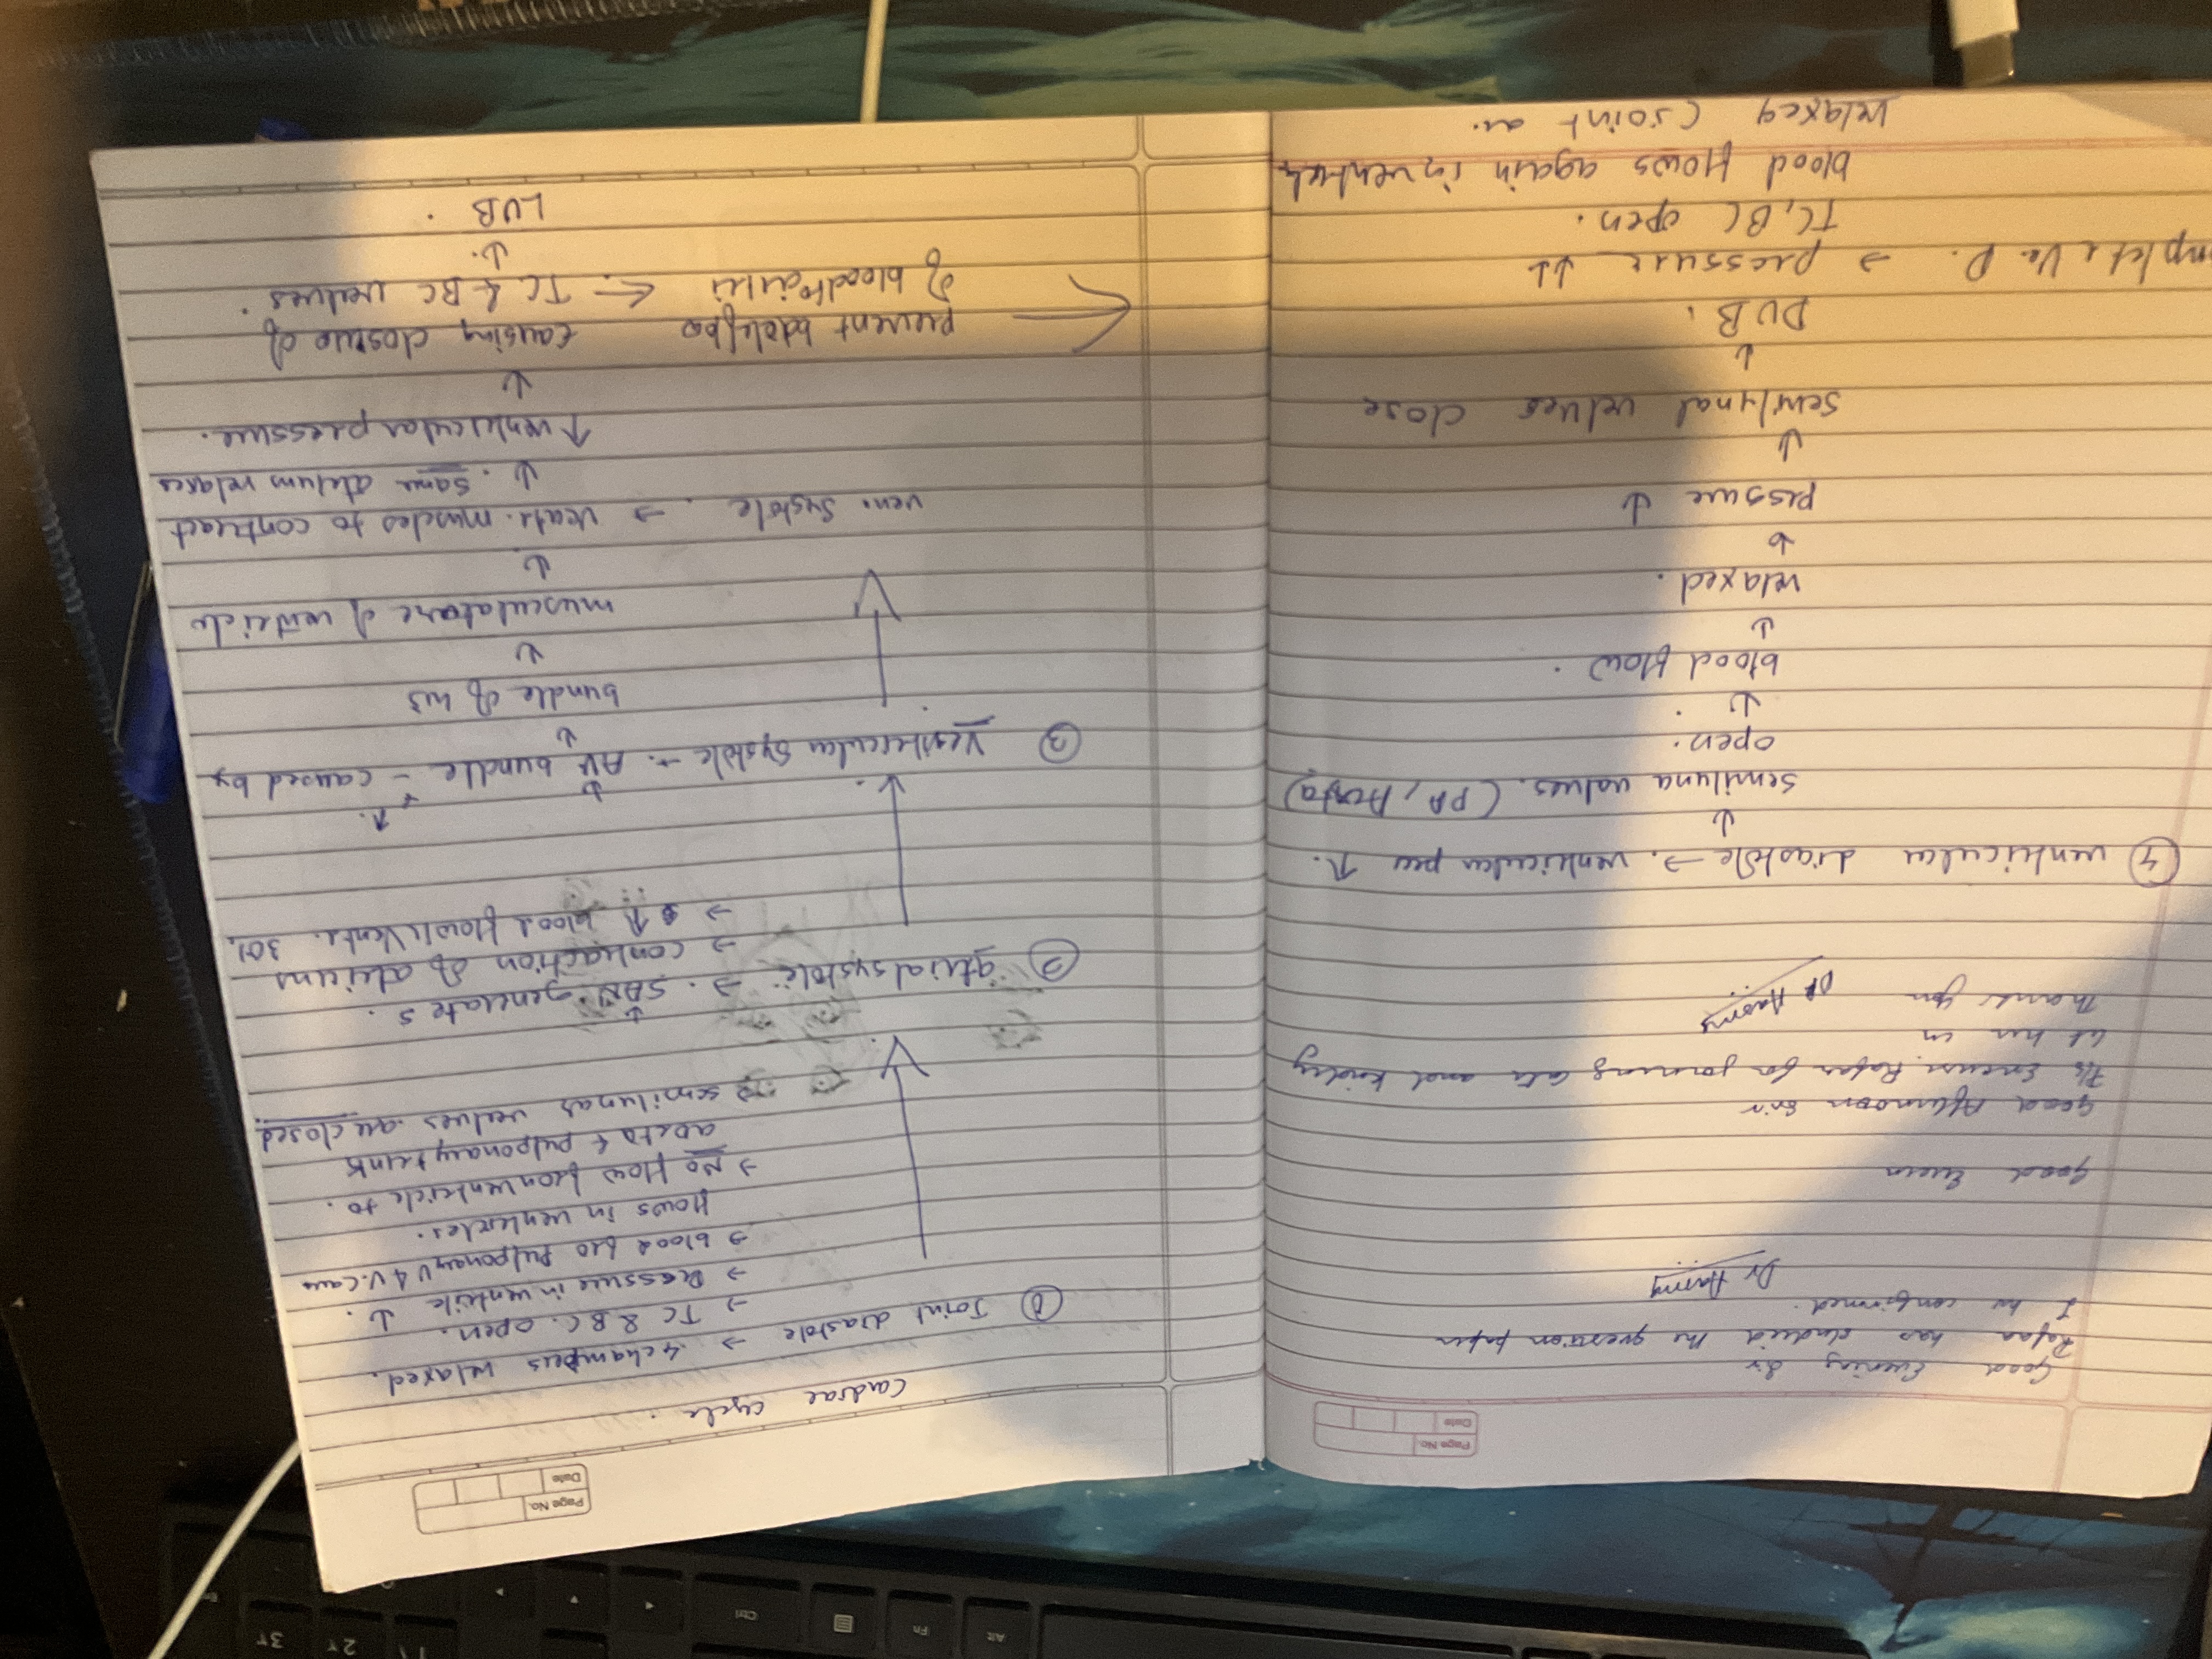 Page No.
Date
Cardiac cycle.
① Joint diastole → 4 chambers relaxed.
→ TC & BC. open.
→ Pressure in ventricle ↓.
→ blood fro pulponary V & V. cava
flows in ventricles.
→ No flow from ventricle to.
aorta & pulponary trunk
→ semilunar valves are closed.
② atrial systole → SAN generates.
→ contraction of atriums
→ ↑ blood flow Ventr. 30%
③ Ventricular systole → AV bundle - caused by
↓
bundle of his
↓
musculature of ventricle
↓
ven. systole. → ventr. muscles to contract
↓. same atrium relaxes
↑ ventricular pressure.
↓
causing closure of
TC & BC valves.
↓
LUB.
prevent
of blood
Page No.
Date
Good Evening Sir
Rafaa has studied the question paper
I hv confirmed.
Dr Hasmy
Good Even
Good Afternoon Sir
Pls Excuse Rafaa for joining late and kindly
let her in
Thank you
Dr Hasmy
④ ventricular diastole → ventricular pre ↑.
↓
semiluna valves. (PA, Aorta)
open.
↓
blood flow.
↓
relaxed.
↓
pessure ↓
↓
semilunal valves close
↓
DUB.
Ve. D. → pressure ↓↓
TC, BC open.
blood flows again in
relaxed (joint
Alt
Fn
Ctrl